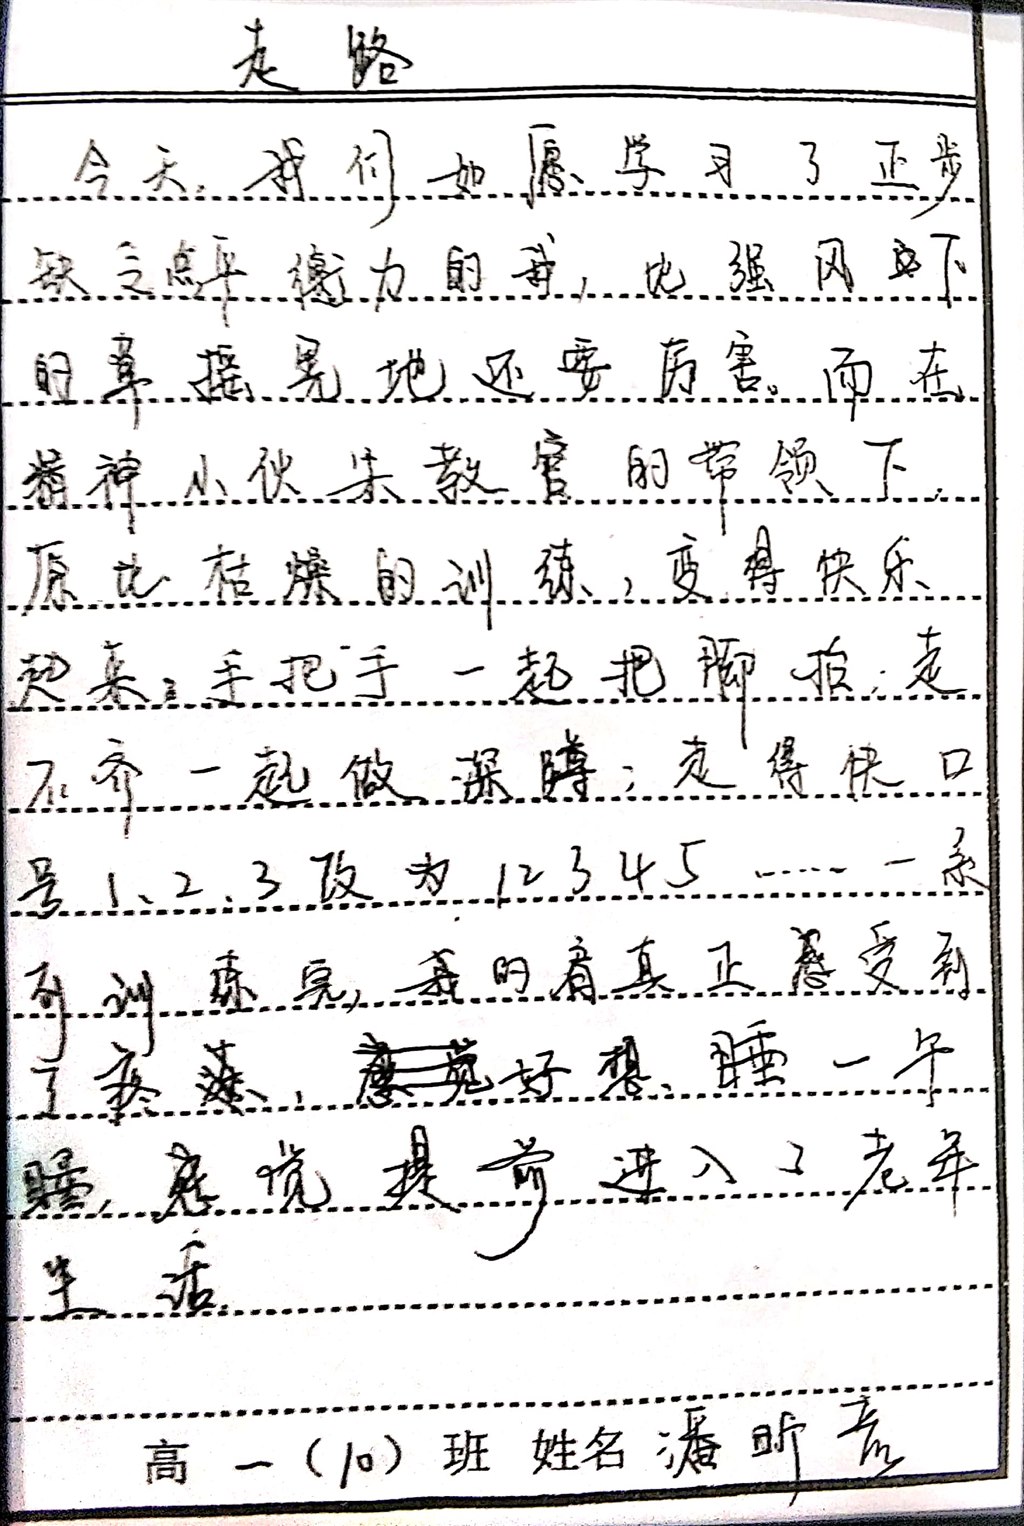 走路
今天,我们如愿学习了正步
缺乏点平衡力的我,比强风下
的草摇晃地还要厉害。而在
精神小伙朱教官的带领下,
原比枯燥的训练,变得快乐
起来。手把手一起把脚抬;走
不齐一起做深蹲;走得快口
号1、2、3改为12345……一系
列训练完,我的肩真正感受到
了疼痛,好想睡一午
睡,感觉提前进入了老年
生活
高一(10)班 姓名 潘昕彦